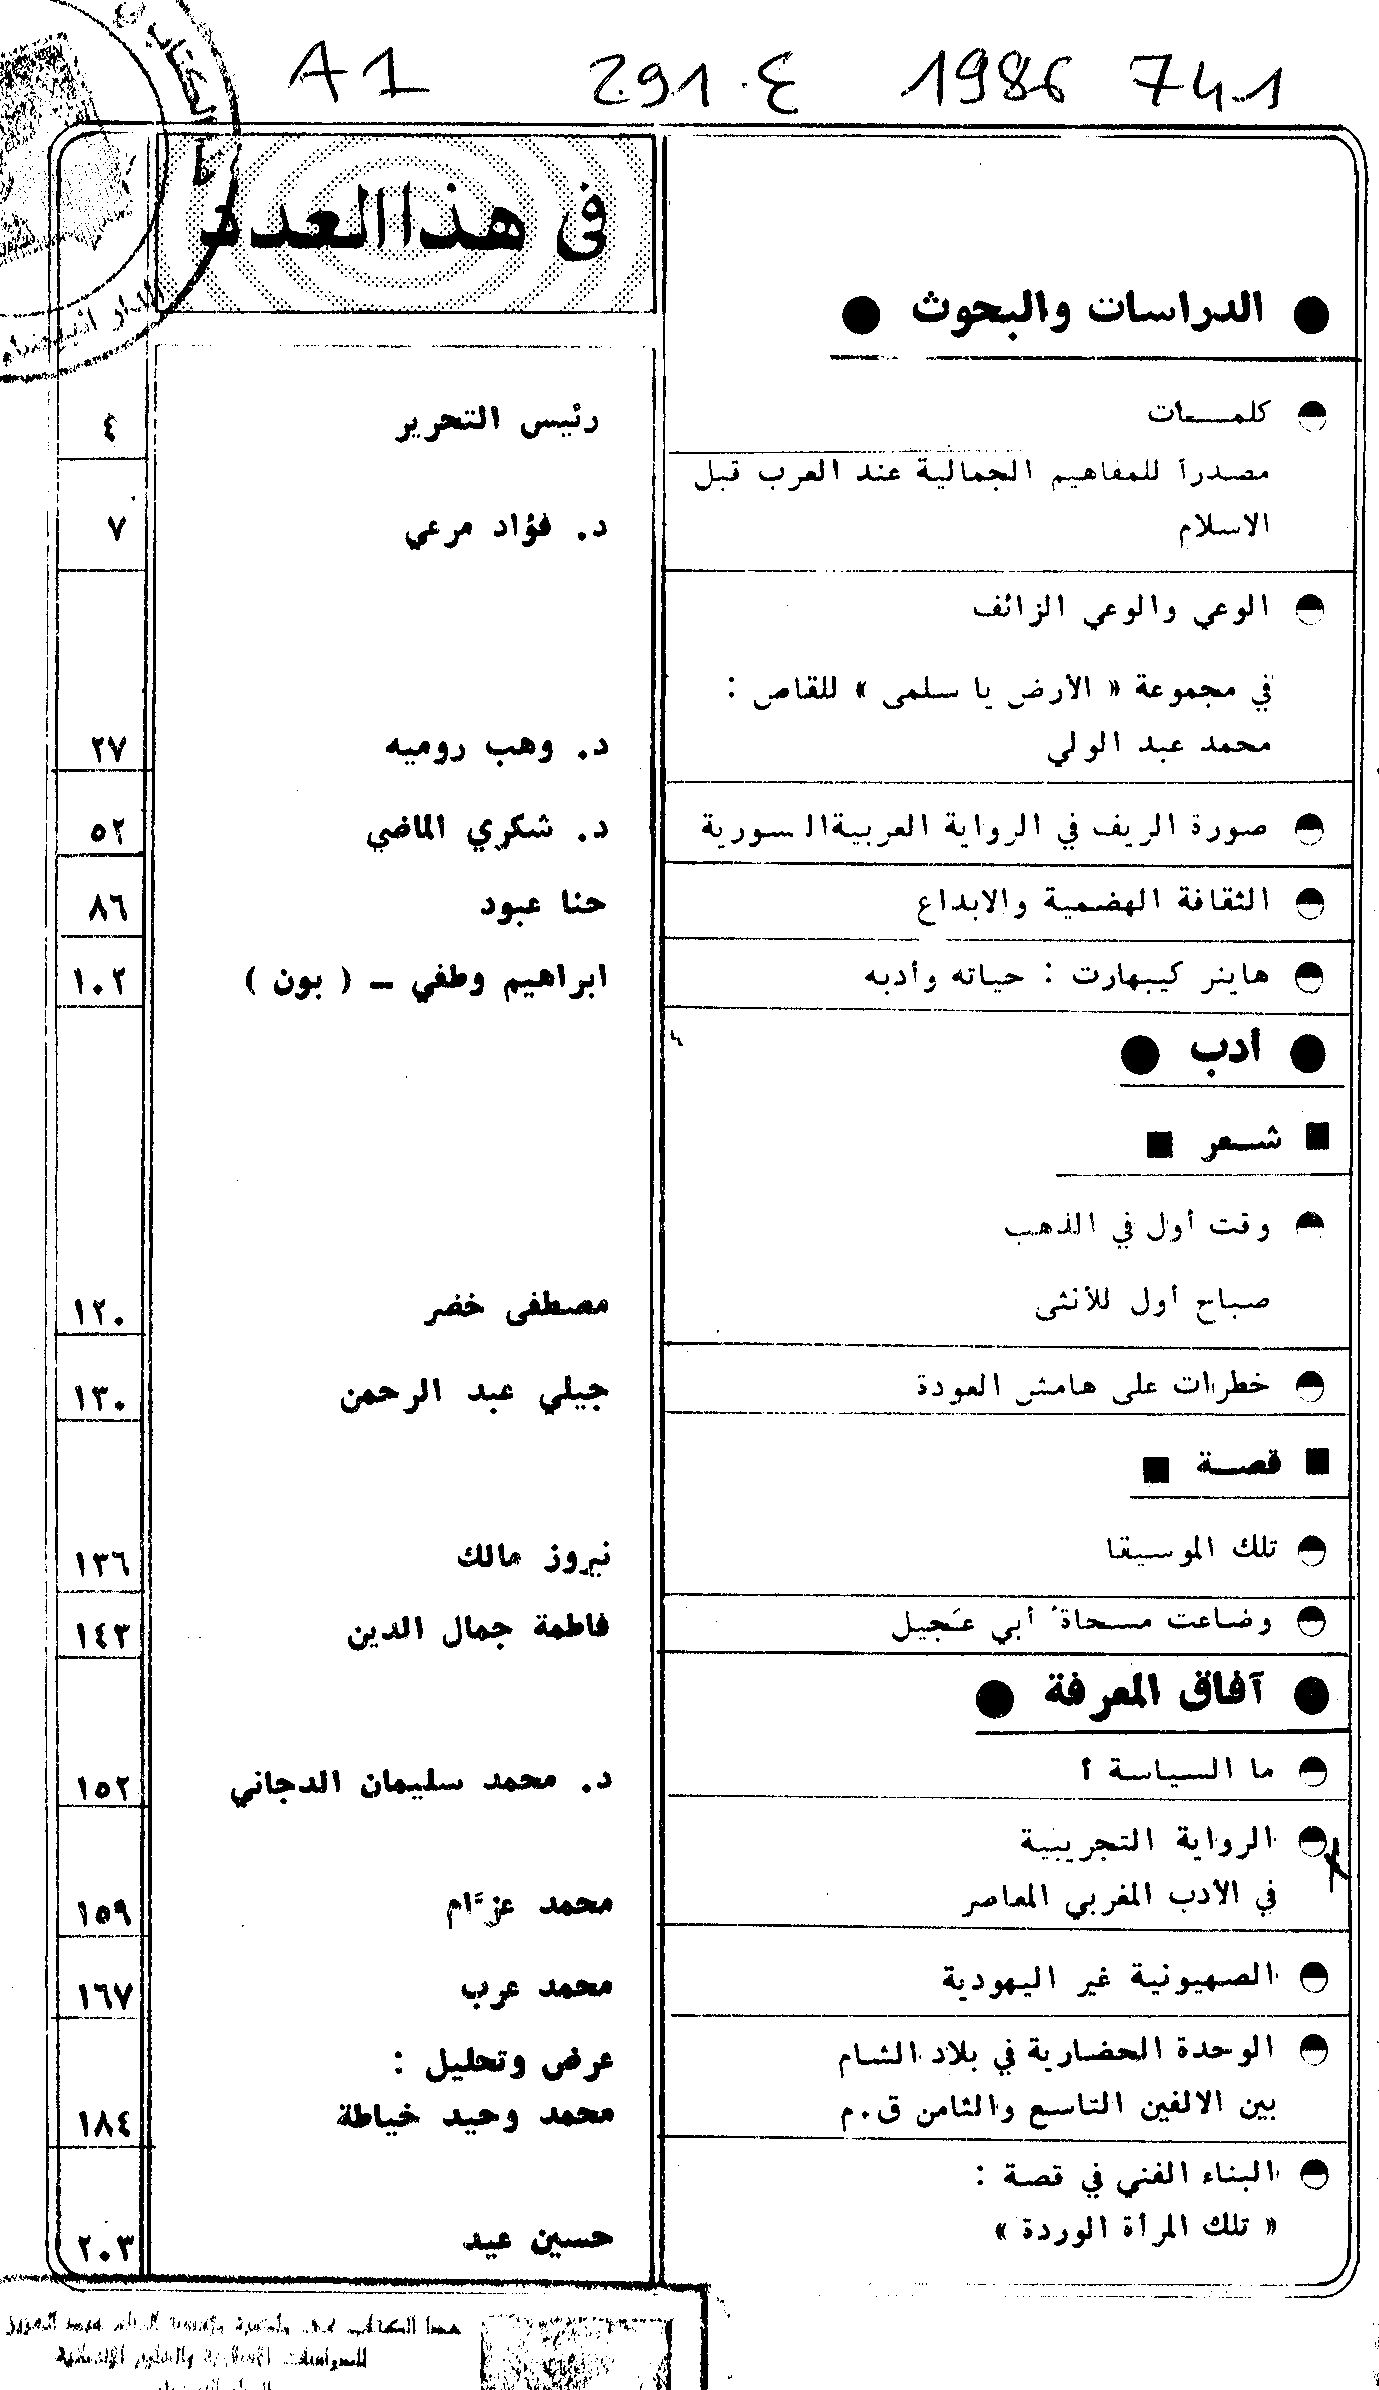 A1 291.ع 1986 741
في هذا العدد
● الدراسات والبحوث ●
كلمـــات
رئيس التحرير
٤
مصدرا للمفاهيم الجمالية عند العرب قبل
الاسلام
د. فؤاد مرعي
٧
الوعي والوعي الزائف
في مجموعة « الارض يا سلمى » للقاص :
محمد عبد الولي
د. وهب روميه
٢٧
صورة الريف في الرواية العربية السورية
د. شكري الماضي
٥٢
الثقافة الهضمية والابداع
حنا عبود
٨٦
هاينر كيبهارت : حياته وأدبه
ابراهيم وطفي ــ ( بون )
١٠٢
● أدب ●
■ شـعر ■
وقت أول في الذهب
صباح أول للأنثى
مصطفى خضر
١٢٠
خطرات على هامش العودة
جيلي عبد الرحمن
١٣٠
■ قصـة ■
تلك الموسيقا
نيروز مالك
١٣٦
وضاعت مسحاة أبي عجيل
فاطمة جمال الدين
١٤٣
● آفاق المعرفة ●
ما السياسة أ
د. محمد سليمان الدجاني
١٥٢
الرواية التجريبية
في الأدب المغربي المعاصر
محمد عزّام
١٥٩
الصهيونية غير اليهودية
محمد عرب
١٦٧
الوحدة الحضارية في بلاد الشام
بين الالفين التاسع والثامن ق.م
عرض وتحليل :
محمد وحيد خياطة
١٨٤
البناء الفني في قصة :
« تلك المرأة الوردة »
حسين عيد
٢٠٣